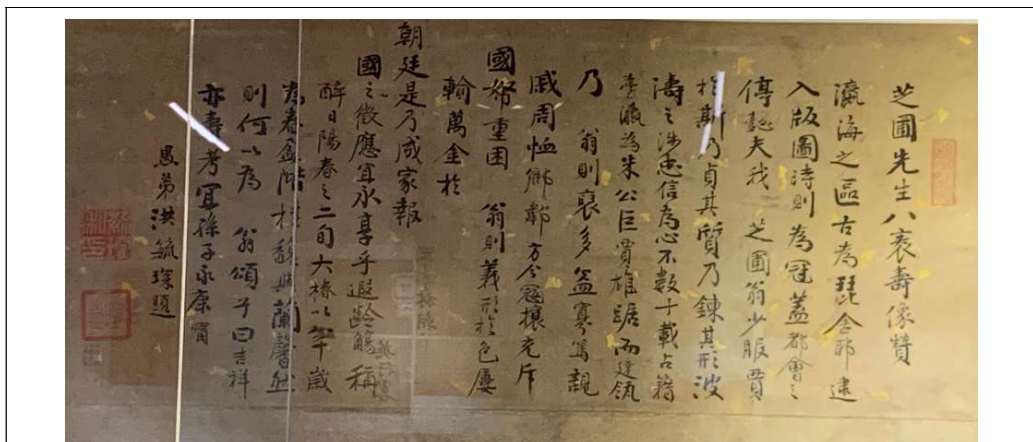 芝圃先生八袠壽像贊
瀛海之區古為毘舍耶逮
入版圖時則為冠蓋都會之
停驂夫我 芝圃翁少服賈
於斯乃貞其質乃鍊其形波
濤之涉忠信為心不數十載占籍
臺瀛為米公巨賈雄踞而建瓴
乃 翁則裒多益寡篤親
戚周恤鄉鄰方今寇攘充斥
國帑重困 翁則義形於色屢
輸萬金於
朝廷是乃咸家報
國之徵應宜永享乎遐齡觴稱
醉日陽春之二旬大椿以年歲
為春盆階 桂馥與蘭馨然
則何以為 翁頌乎曰吉祥
亦壽考宜孫子永康甯
愚弟洪毓琛題